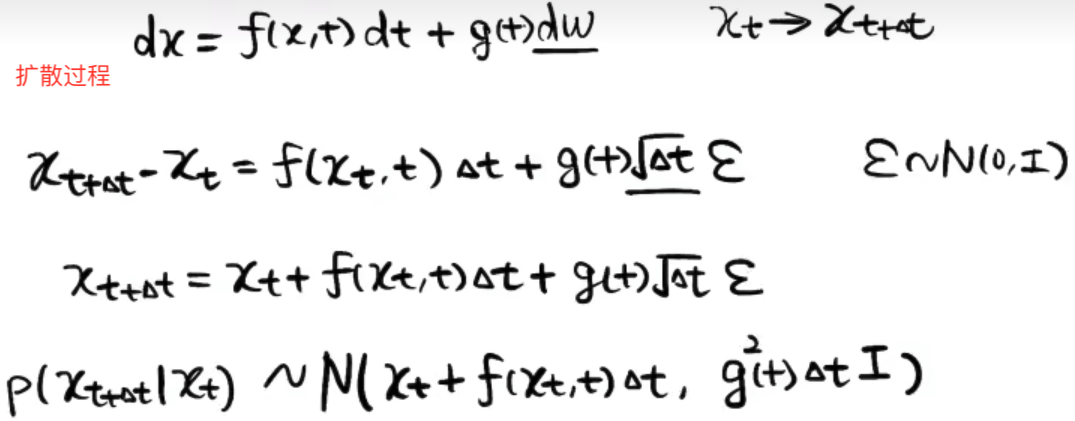 dx = f(x,t) dt + g(t) dw    x_t → x_{t+Δt}
扩散过程
x_{t+Δt} - x_t = f(x_t,t) Δt + g(t)√Δt ε    ε∼N(0,I)
x_{t+Δt} = x_t + f(x_t,t)Δt + g(t)√Δt ε
p(x_{t+Δt}|x_t) ∼ N(x_t + f(x_t,t)Δt, g²(t)Δt I)